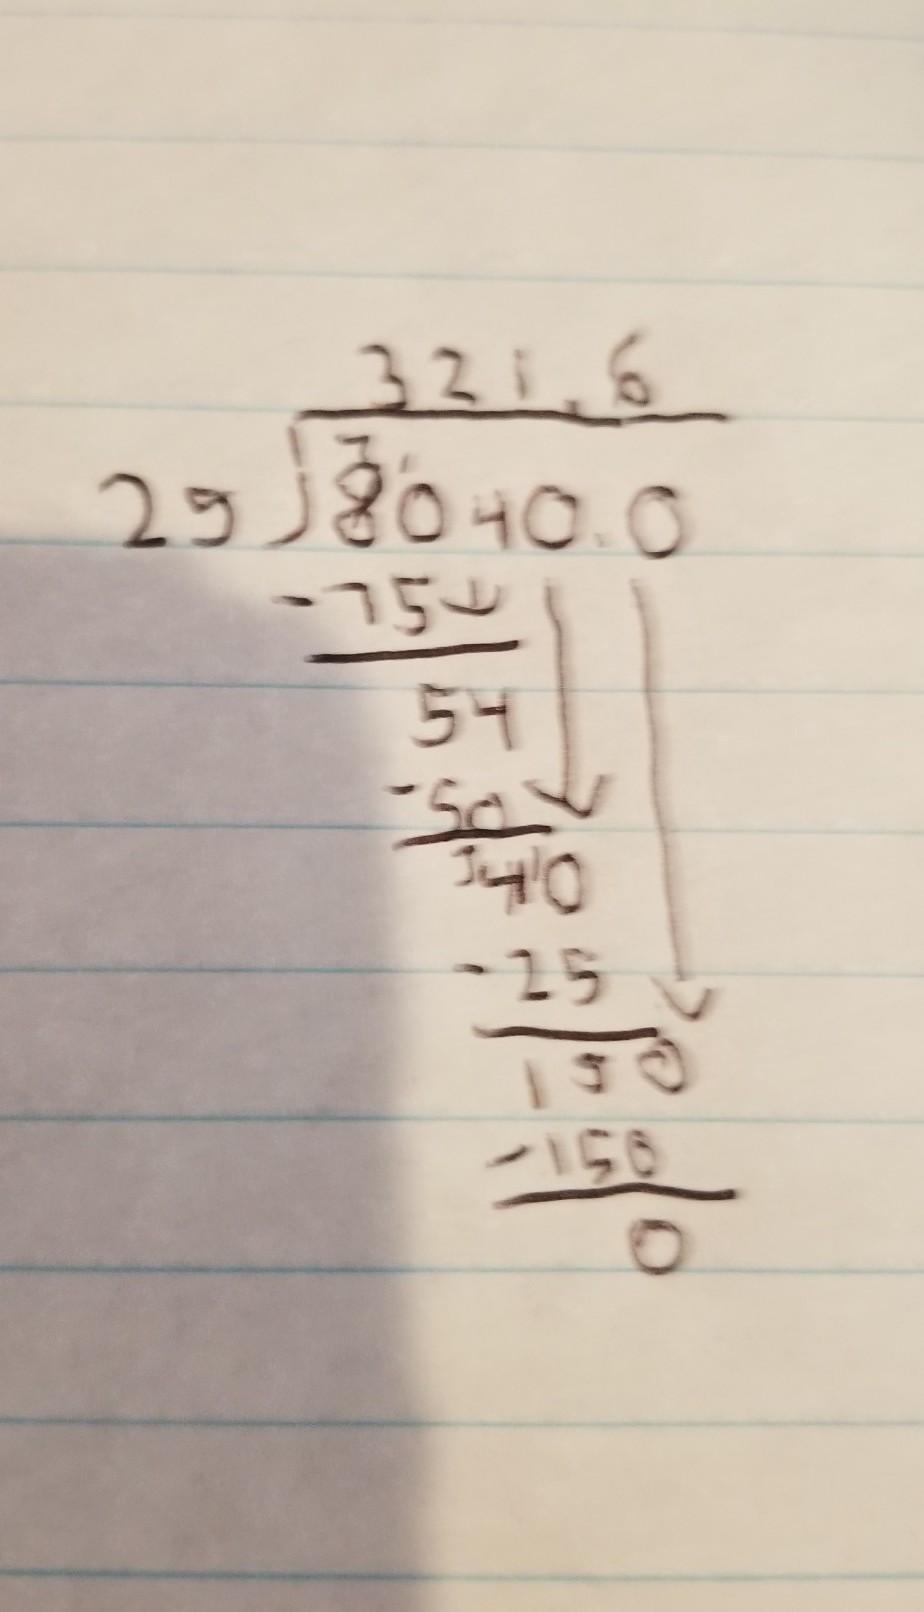 321.6
25 8040.0
7 1
-75
54
-50
3 1
40
-25
150
-150
0